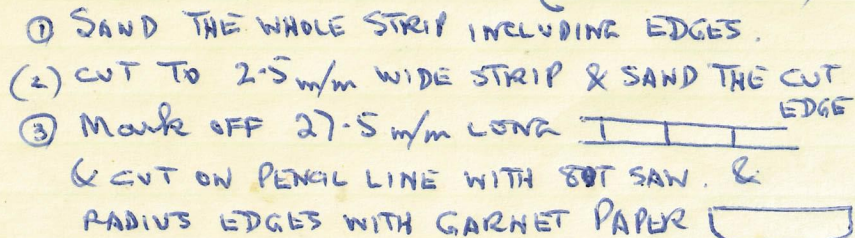 ① SAND THE WHOLE STRIP INCLUDING EDGES.
(2) CUT TO 2.5 m/m WIDE STRIP & SAND THE CUT EDGE
③ Mark OFF 27.5 m/m LONG
& CUT ON PENCIL LINE WITH 80T SAW. &
RADIUS EDGES WITH GARNET PAPER